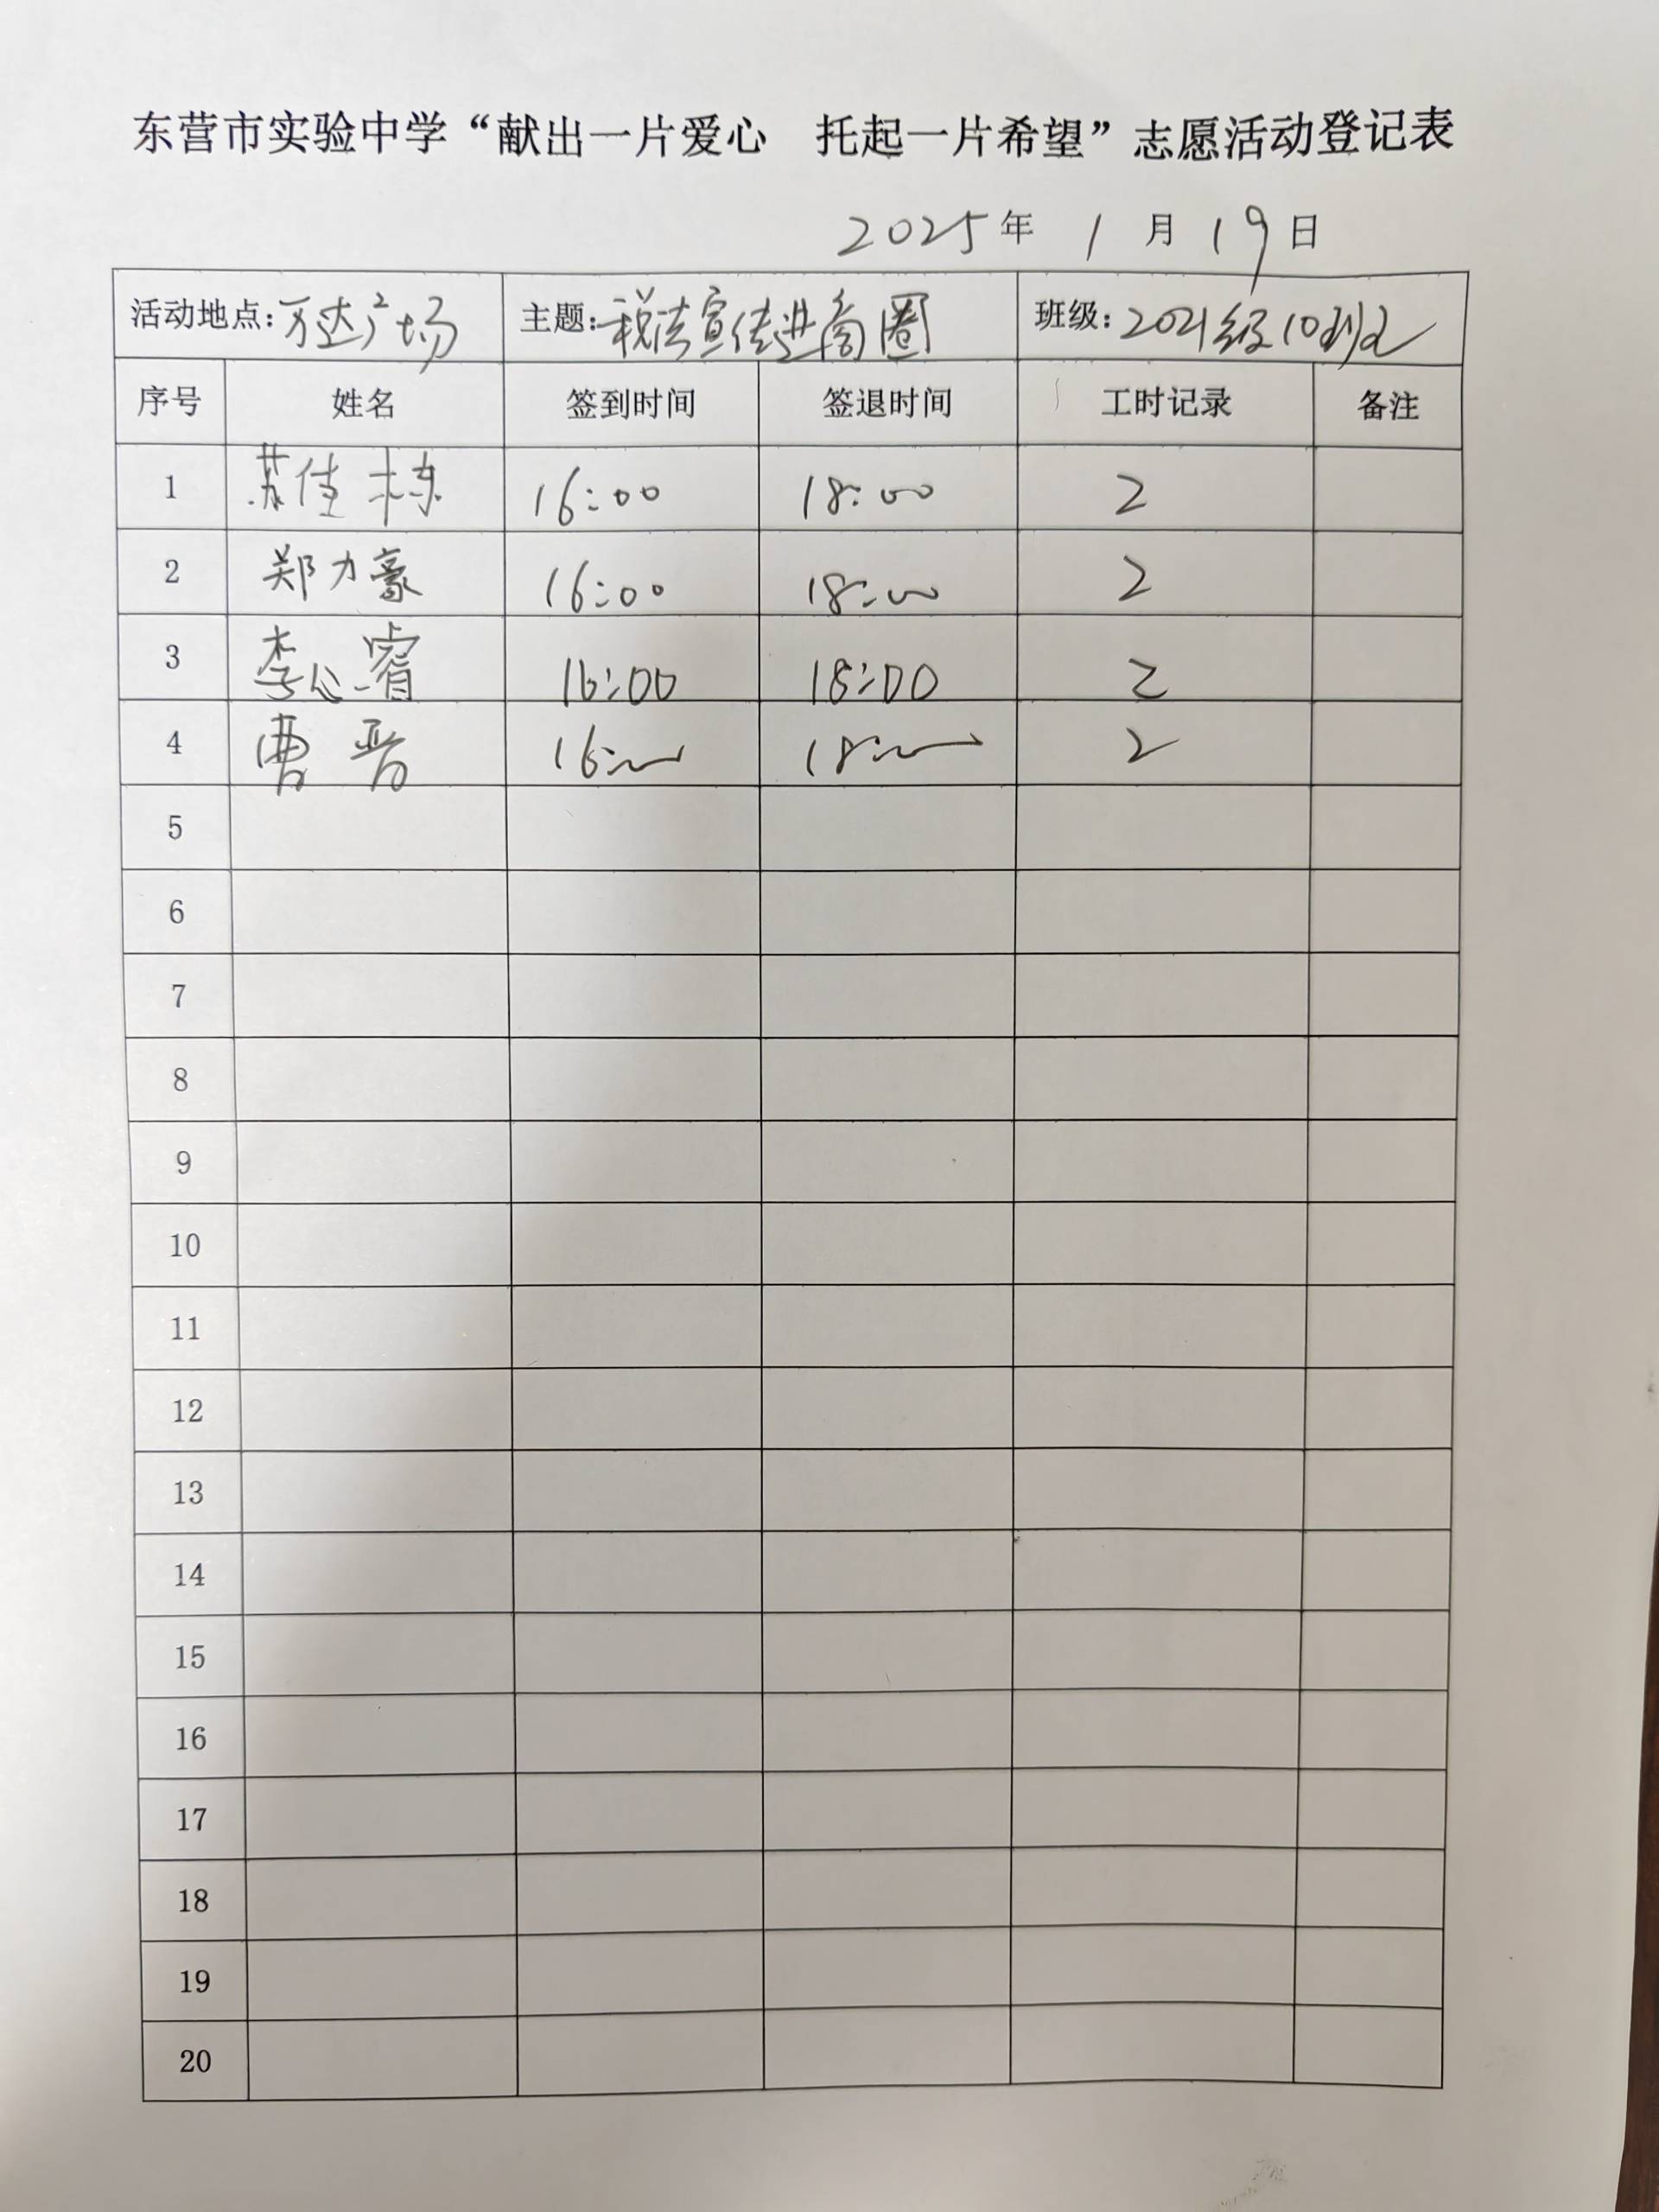 东营市实验中学“献出一片爱心　托起一片希望”志愿活动登记表
2025年 1 月 19 日
活动地点：万达广场 主题：税法宣传进商圈 班级：2021级10班
序号 姓名 签到时间 签退时间 工时记录 备注
1 苏佳栋 16:00 18:00 2
2 郑力豪 16:00 18:00 2
3 李心睿 16:00 18:00 2
4 曹晋 16:00 18:00 2
5
6
7
8
9
10
11
12
13
14
15
16
17
18
19
20